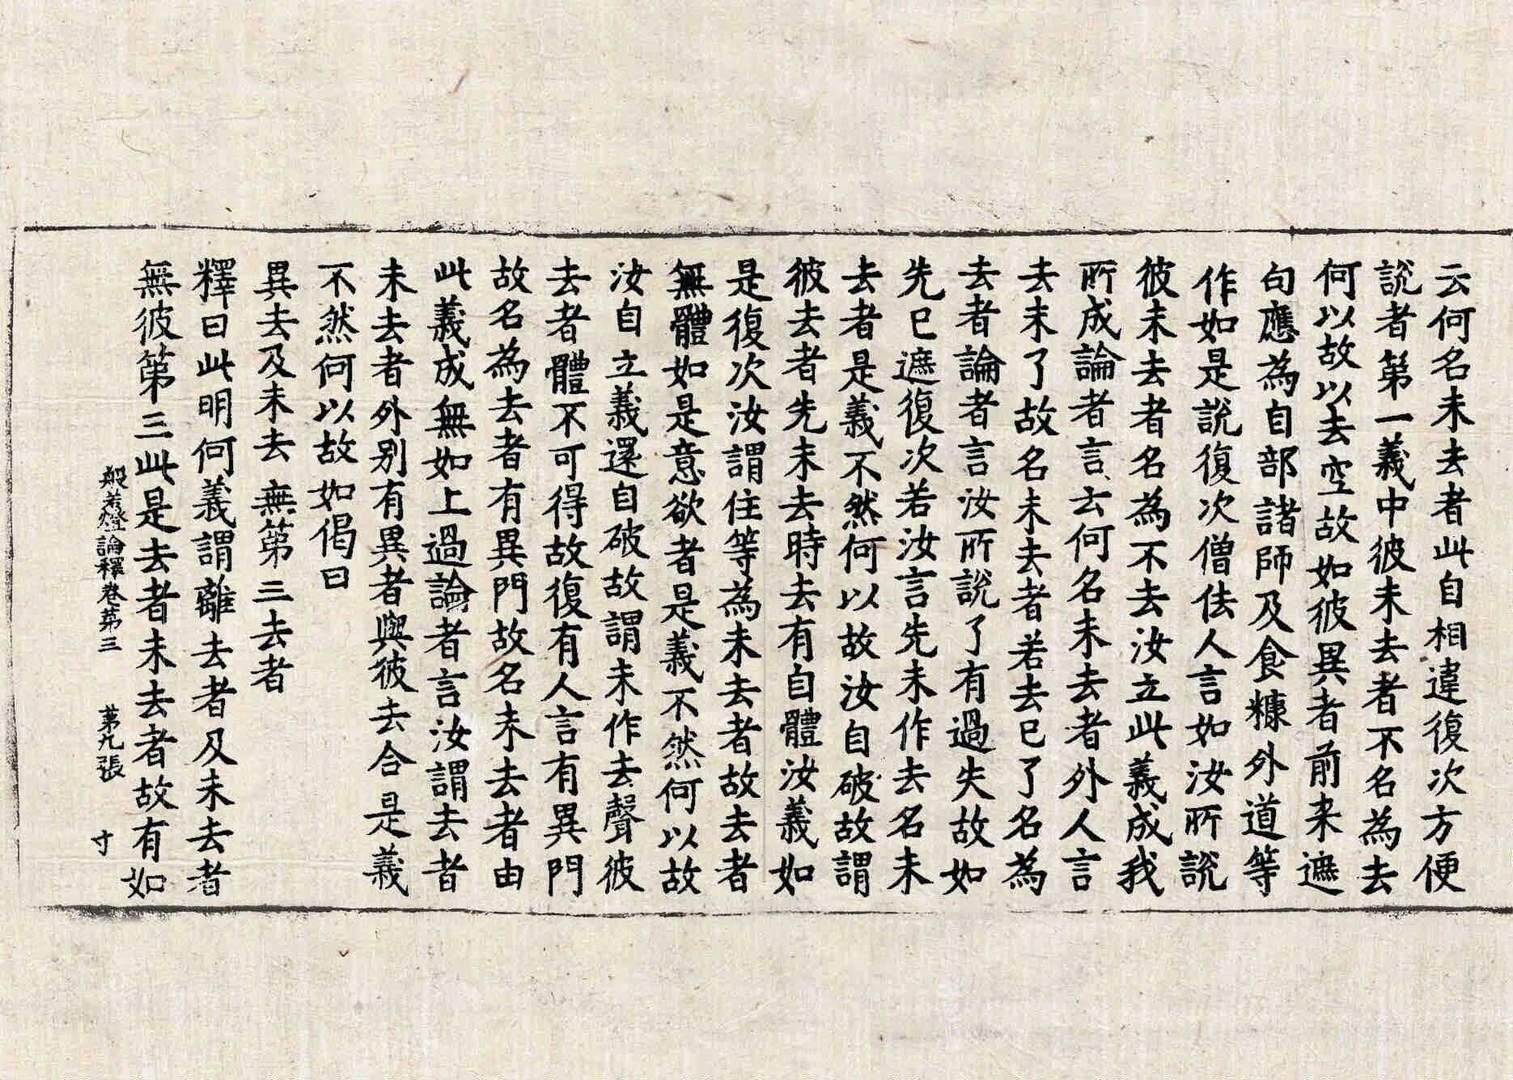 云何名未去者此自相違復次方便
說者第一義中彼未去者不名為去
何以故以去空故如彼異者前来遮
句應為自部諸師及食糠外道等
作如是說復次僧佉人言如汝所說
彼未去者名為不去汝立此義成我
所成論者言云何名未去者外人言
去未了故名未去者若去已了名為
去者論者言汝所說了有過失故如
先已遮復次若汝言先未作去名未
去者是義不然何以故汝自破故謂
彼去者先未去時去有自體汝義如
是復次汝謂住等為未去者故去者
無體如是意欲者是義不然何以故
汝自立義還自破故謂未作去聲彼
去者體不可得故復有人言有異門
故名為去者有異門故名未去者由
此義成無如上過論者言汝謂去者
未去者外別有異者與彼去合是義
不然何以故如偈曰
異去及未去 無第三去者
釋曰此明何義謂離去者及未去者
無彼第三此是去者未去者故有如
般若燈論釋卷第三 第九張 寸